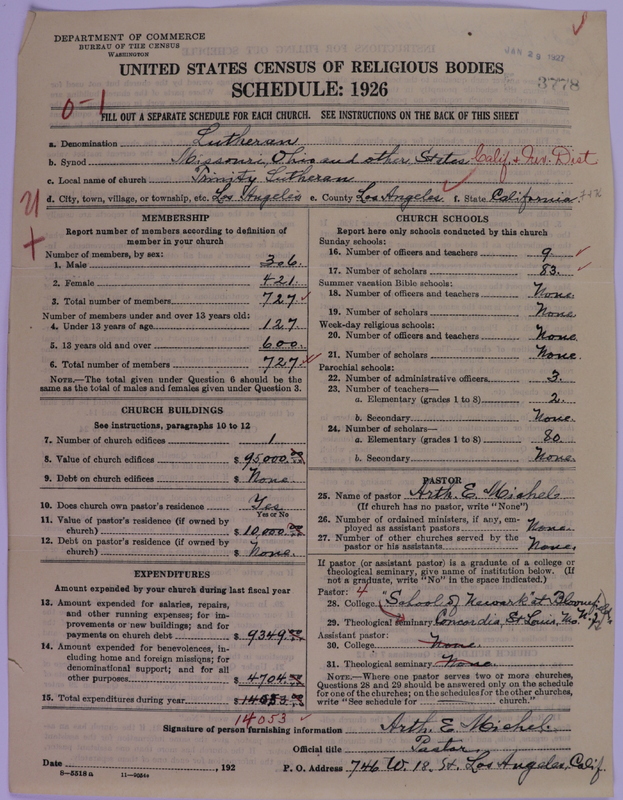 DEPARTMENT OF COMMERCE
BUREAU OF THE CENSUS
WASHINGTON
JAN 29 1927
3778
UNITED STATES CENSUS OF RELIGIOUS BODIES
SCHEDULE: 1926
0-1
FILL OUT A SEPARATE SCHEDULE FOR EACH CHURCH. SEE INSTRUCTIONS ON THE BACK OF THIS SHEET
a. Denomination Lutheran
b. Synod Missouri, Ohio and other States Calif. + Nev. Dist
c. Local name of church Trinity Lutheran
d. City, town, village, or township, etc. Los Angeles e. County Los Angeles f. State California
MEMBERSHIP
Report number of members according to definition of
member in your church
Number of members, by sex:
1. Male 306
2. Female 421
3. Total number of members 727
Number of members under and over 13 years old:
4. Under 13 years of age 127
5. 13 years old and over 600
6. Total number of members 727
NOTE.—The total given under Question 6 should be the
same as the total of males and females given under Question 3.
CHURCH BUILDINGS
See instructions, paragraphs 10 to 12
7. Number of church edifices 1
8. Value of church edifices $ 95000.00
9. Debt on church edifices $ None.
10. Does church own pastor's residence Yes
Yes or No
11. Value of pastor's residence (if owned by
church) $ 10,000.00
12. Debt on pastor's residence (if owned by
church) $ None.
EXPENDITURES
Amount expended by your church during last fiscal year
13. Amount expended for salaries, repairs,
and other running expenses; for im-
provements or new buildings; and for
payments on church debt $ 9349.00
14. Amount expended for benevolences, in-
cluding home and foreign missions; for
denominational support; and for all
other purposes $ 4704.00
15. Total expenditures during year $ 14053.00
14053
CHURCH SCHOOLS
Report here only schools conducted by this church
Sunday schools:
16. Number of officers and teachers 9
17. Number of scholars 83.
Summer vacation Bible schools:
18. Number of officers and teachers None.
19. Number of scholars None
Week-day religious schools:
20. Number of officers and teachers None.
21. Number of scholars None.
Parochial schools:
22. Number of administrative officers 3.
23. Number of teachers—
a. Elementary (grades 1 to 8) 2.
b. Secondary None.
24. Number of scholars—
a. Elementary (grades 1 to 8) 80.
b. Secondary None.
PASTOR
25. Name of pastor Arth. E. Michel
(If church has no pastor, write "None")
26. Number of ordained ministers, if any, em-
ployed as assistant pastors None.
27. Number of other churches served by the
pastor or his assistants None.
If pastor (or assistant pastor) is a graduate of a college or
theological seminary, give name of institution below. (If
not a graduate, write "No" in the space indicated.)
Pastor: 4
28. College "School of Newark" at Bloomfield, N.J.
29. Theological seminary Concordia, St. Louis, Mo.
Assistant pastor:
30. College None.
31. Theological seminary None.
NOTE.—Where one pastor serves two or more churches,
Questions 28 and 29 should be answered only on the schedule
for one of the churches; on the schedules for the other churches,
write "See schedule for church."
Signature of person furnishing information Arth. E. Michel
Official title Pastor
Date , 192 P. O. Address 746 W. 18. St. Los Angeles, Calif.
8-5518a 11-9024